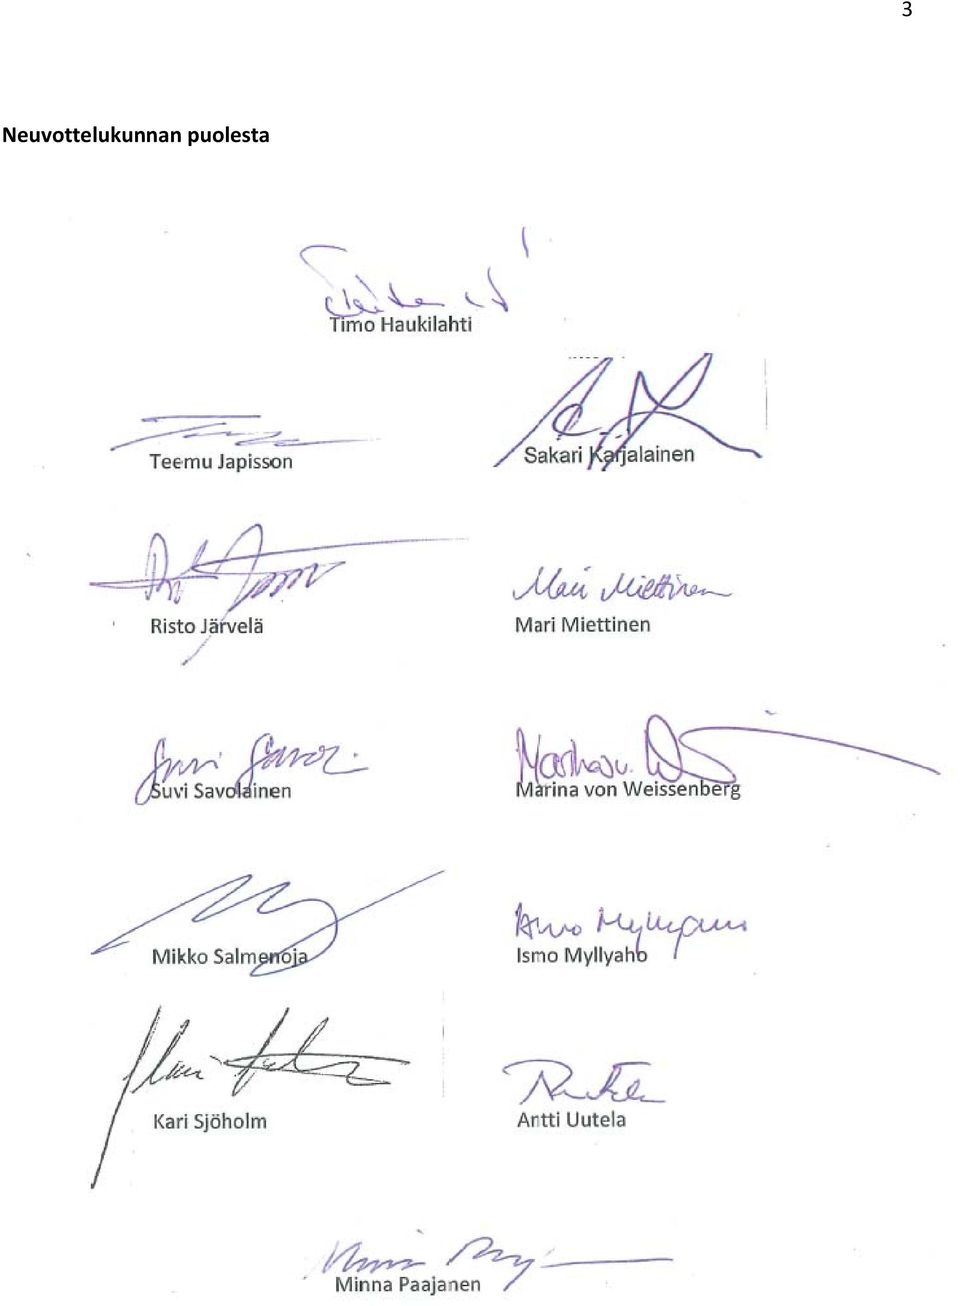 3
Neuvottelukunnan puolesta
Timo Haukilahti
Teemu Japisson
Sakari Karjalainen
Risto Järvelä
Mari Miettinen
Mari Miettinen
Suvi Savolainen
Marina von Weissenberg
Mikko Salmenoja
Ismo Myllyaho
Kari Sjöholm
Antti Uutela
Minna Paajanen